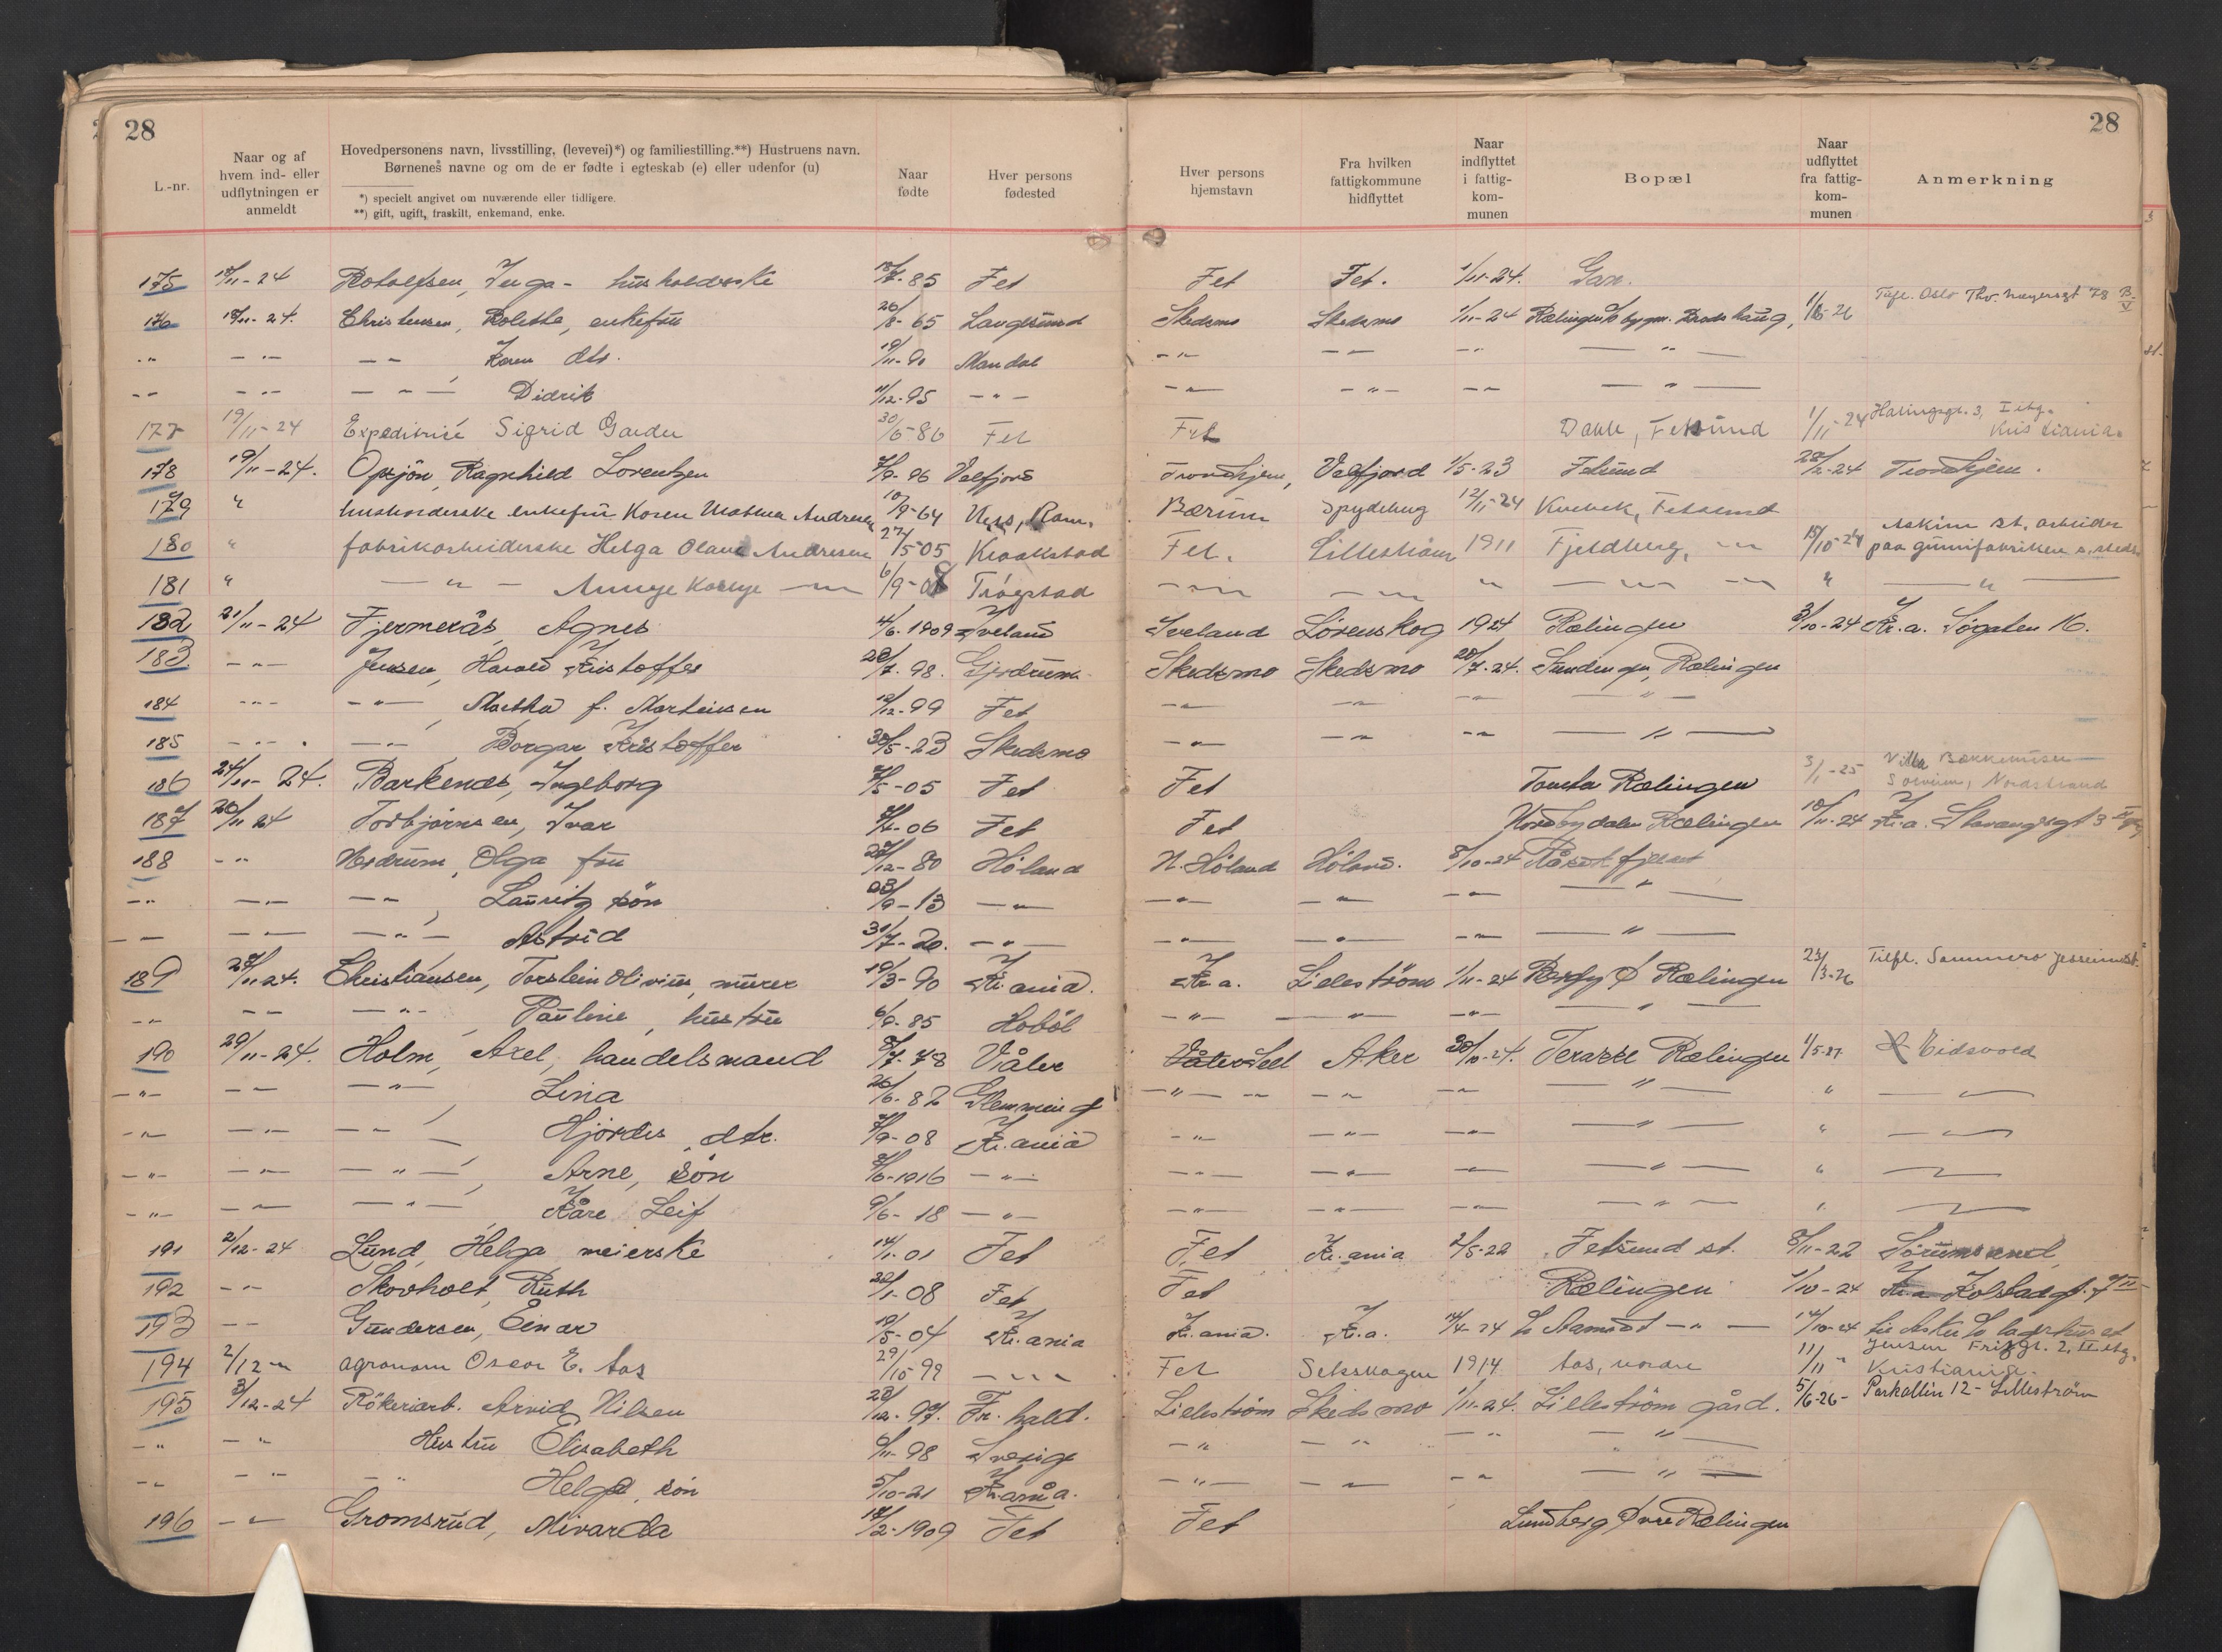 28
28
L.-nr.
Naar og af hvem ind- eller udflytningen er anmeldt
Hovedpersonens navn, livsstilling, (levevei)*) og familiestilling.**) Hustruens navn.
Børnenes navne og om de er fødte i egteskab (e) eller udenfor (u)
*) specielt angivet om nuværende eller tidligere.
**) gift, ugift, fraskilt, enkemand, enke.
Naar fødte
Hver persons fødested
Hver persons hjemstavn
Fra hvilken fattigkommune hidflyttet
Naar indflyttet i fattig-kom-munen
Bopæl
Naar udflyttet fra fattig-kom-munen
Anmerkning
175 18/11-24 Rotolfsen, Inga - husholderske 85 Fet Fet Fet. 1/11-24.
176 18/11-24. Christensen, Bolette, enkefru 20/8-65 Langesund Skedsmo Skedsmo 1/11-24 Rælingen 1/6-26 Oslo
" - " - - " - Karen dtr. 19/11-90 Mandal - " - - " - - " - - " -
- " - - " - - " - Didrik 11/12-95 - " - - " - - " - - " - - " -
177 19/11-24 Expeditrise Sigrid Garder 30/5-86 Fet Fet Dahl, Fetsund 1/11-24 3, I etg. Kristiania
178 19/11-24. Opsjön, Ragnhild Lorentzen 96 Velfjord Trondhjem, Velfjord 1/5-23 Fetsund 28/2-24 Trondhjem.
179 " husholderske enkefru Karen Mathea Andresen 10/9-64 Bærum Spydeberg 12/11-24 Kvebek, Fetsund
180 " fabrikarbeiderske Helga Olava Andresen 27/5-05 Kraakstad Fet. Lilleström 1911 Fjeldberg, - " - 15/10-24 Askim st, arbeider
paa gummifabriken s. steds
181 " - " - - " - 6/9-08 Trögstad - " - - " - " - " - - " - " - " -
182 21/11-24 Fjermerås, Agnes 4/6-1909 Iveland Iveland Lørenskog 1924 Rælingen 3/10-24 Kr.a. Søgaten 16.
183 - " - Jensen, Harald Kristoffer 20/7-98. Gjerdrum Skedsmo Skedsmo 20/7-24. Rælingen
184 - " - - " - , Martha f. Martinsen 12/12-99 Fet - " - - " - - " - - " -
185 - " - - " - Borgar Kristoffer 30/5-23 Skedsmo - " - - " - - " - - " -
186 24/11-24. Barkenæs, Ingeborg 05 Fet Fet Tomta Rælingen 3/1-25 Villa
Nordstrand
187 26/11 24 Torbjørnsen, Ivar 06 Fet Fet Nordbydalen Rælingen 10/11-24 Kr.a. Stavangergt 3
188 - " - Nordrum, Olga fru 12-80 Höland N. Höland Höland. 8/10-24
- " - - " - - " - , Lauritz sön 23/9-13 - " - - " - - " - - " -
- " - - " - - " - Astrid 31/7-20. - " - - " - - " - - " - - " -
189 28/11 24. Christiansen, Torstein Olivius, murer 19/3-90 Kr.ania. Kr.a. Lilleström 1/11-24 Rælingen 23/3-26 Tilfl. Sommero Jessheim st.
- " - - " - - " - , Pauline, hustru 6/9-85 Hobøl - " - - " - - " - - " -
190 29/11-24. Holm, Axel, handelsmand 8/7-78 Våler Aker 30/10-24. Rælingen 1/5-27 Eidsvold
- " - - " - - " - , Lina 26/6-82 Glemming - " - - " - - " - - " - " - " -
- " - - " - - " - , Hjørdis, dtr. 08 Kr.ania - " - - " - - " - - " - " - " -
- " - - " - - " - , Arne, sön 1916 - " - - " - - " - - " - - " - " - " -
- " - - " - - " - , Kåre Leif 9/6-18 - " - - " - - " - - " - - " - " - " -
191 2/12-24 Lund, Helga meierske 14/1-01 Fet Fet Kr.ania 2/5-22 Fetsund st. 8/11-22 Sörumsand
192 - " - Skovholt, Ruth 20/1-08 Fet Fet Rælingen 1/10-24
193 - " - Gundersen, Einar 19/5-04 Kr.ania Kr.ania. Kr.a. 14/4-24 - " - 14/10-24
194 2/12 - " - agronom Oscar E. Aas 29/10-99 - " - Fet 1914 Aas, nordre 11/11 " Jensen 2, II etg. Kristiania.
195 3/12-24 Rökeriarb. Arvid Nilsen 23/12-97. Fr.hald. Lilleström Skedsmo 1/11-24. Lilleström gård. 5/6-26 - Parkallin 12 - Lilleström
- " - - " - Hustru Elisabeth 6/11-98 Sverige - " - - " - - " - - " -
- " - - " - - " - Helge, sön 5/10-21 Kr.ania. - " - - " - - " - - " -
196 - " - Gromsrud, Mivarda 2-1909 Fet Fet Lundberg Øvre Rælingen